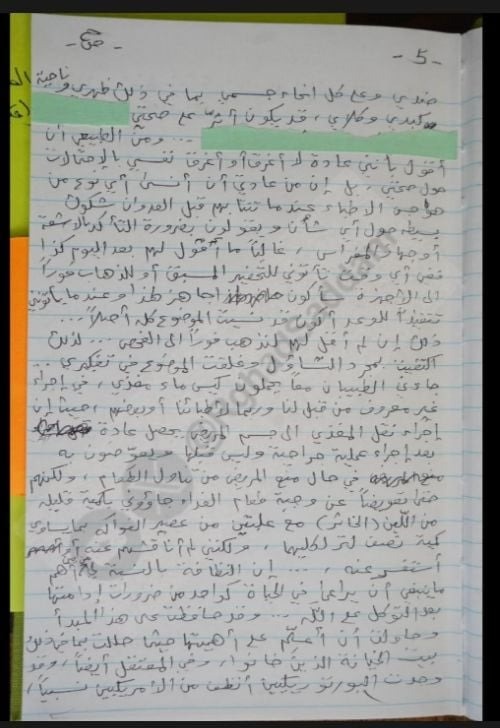 - ص ع -
- 5 -
صدري وعلى كل انحاء جسمي بما في ذلك ظهري وناحية
كبدي وكلاي، قد يكون أثر على صحتي
... ومن الطبيعي أن
أقول بأنني عادة لا أغرق أو أغرق نفسي بالإحتمالات
حول صحتي، بل إن من عادتي أن أنسى أي نوع من
هواجس الأطباء عندما تنتابهم قبل العدوان شكوك
بسيطة حول أي شأن ويقولون بضرورة التأكد بالاشعة
أوجهاز المفراس، غالباً ما أقول لهم بعد اليوم كذا
ففي أي وقت تأتوني للتحضير المسبق أو للذهاب فوراً
الى الأجهزة يسألون اجاهر هذا وعندما يأتونني
تنفيذاً للوعد أكون قد نسيت الموضوع كله أصلاً ...
ذلك إن لم أقل لهم لنذهب فوراً الى الفحص ... لذلك
اكتفيت بمجرد التساؤل وغلقت الموضوع في تفكيري ...
جاءني الطبيبان معاً يحملون كيس ماء مغذي، في إجراء
غير معروف من قبل لنا وربما لأطبائنا أو بعضهم، حيث إن
إجراء نقل المغذي الى جسم المريض يحصل عادة
بعد إجراء عملية جراحية وليس قبلها ويعوضون به
في حال منع المريض من تناول الطعام، ولكنهم
حتى تعويضاً عن وجبة طعام الغداء جاؤوني بكمية قليلة
من اللبن (الخاثر) مع علبتين من عصير الفواكه بما يساوي
كمية نصف لتر لكليهما، ولكنني لم أناقشهم عنه أو
أستفسر عنه، ... إن النظافة بالنسبة لي أهم
ما ينبغي أن يراعى في الحياة كواحد من ضرورات إدامتها
بعد التوكل على الله ... وقد حافظت على هذا المبدأ
وحاولت أن أعلم على أهميتها حيثما حللت بما في ذلك
بيت الخيانة الذين خانوا، وفي المعتقل أيضاً، وقد
وجدت البورتوريكيين أنظف من الأمريكيين نسبياً،
@RghadSaddam